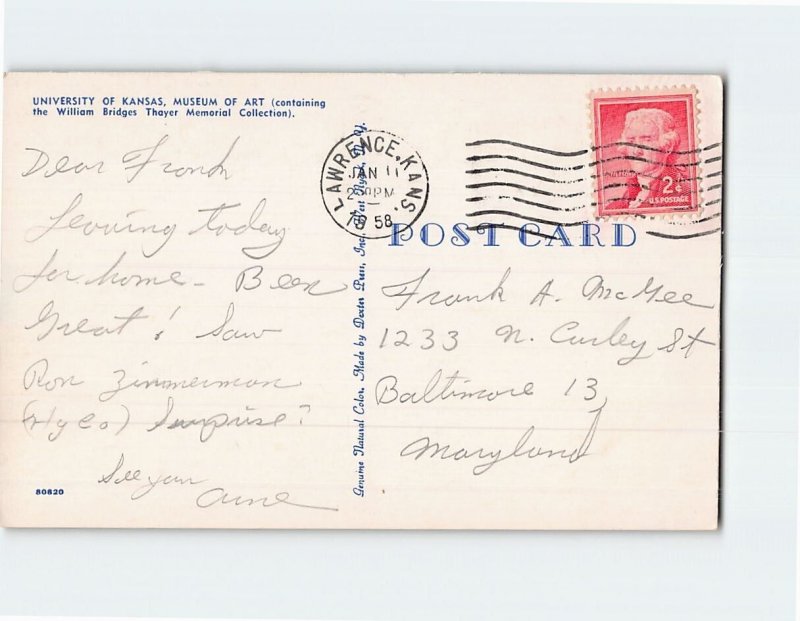 UNIVERSITY OF KANSAS, MUSEUM OF ART (containing
the William Bridges Thayer Memorial Collection).
Dear Frank
Leaving today
for home - Been
Great! Saw
Ron Zimmerman
Surprise?
See you
LAWRENCE, KANS.
JAN 11
PM
1958
2¢
U.S. POSTAGE
POST CARD
Frank A. McGee
1233 N. Curley St
Baltimore 13,
Maryland
Genuine Natural Color. Made by Dexter Press, Inc., West Nyack, N. Y.
80820